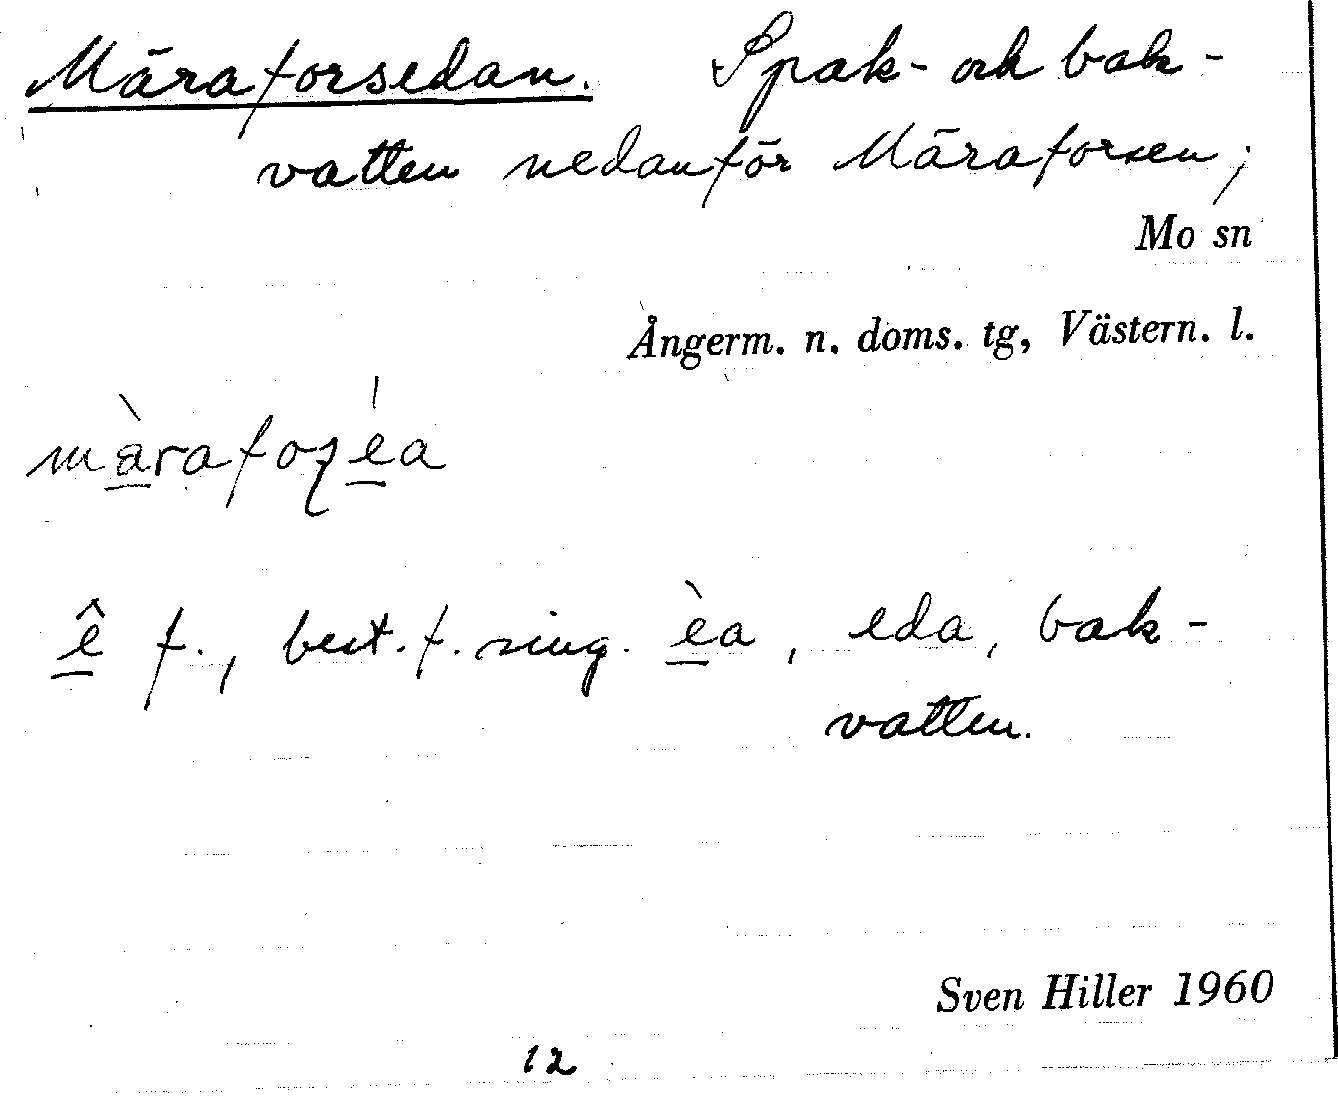 Märaforsedan. Spak- och bak-
vatten nedanför Märaforsen;
Mo sn
Ångerm. n. doms. tg, Västern. l.
ê f., best. f. sing. èa, eda, bak-
vatten.
Sven Hiller 1960
12